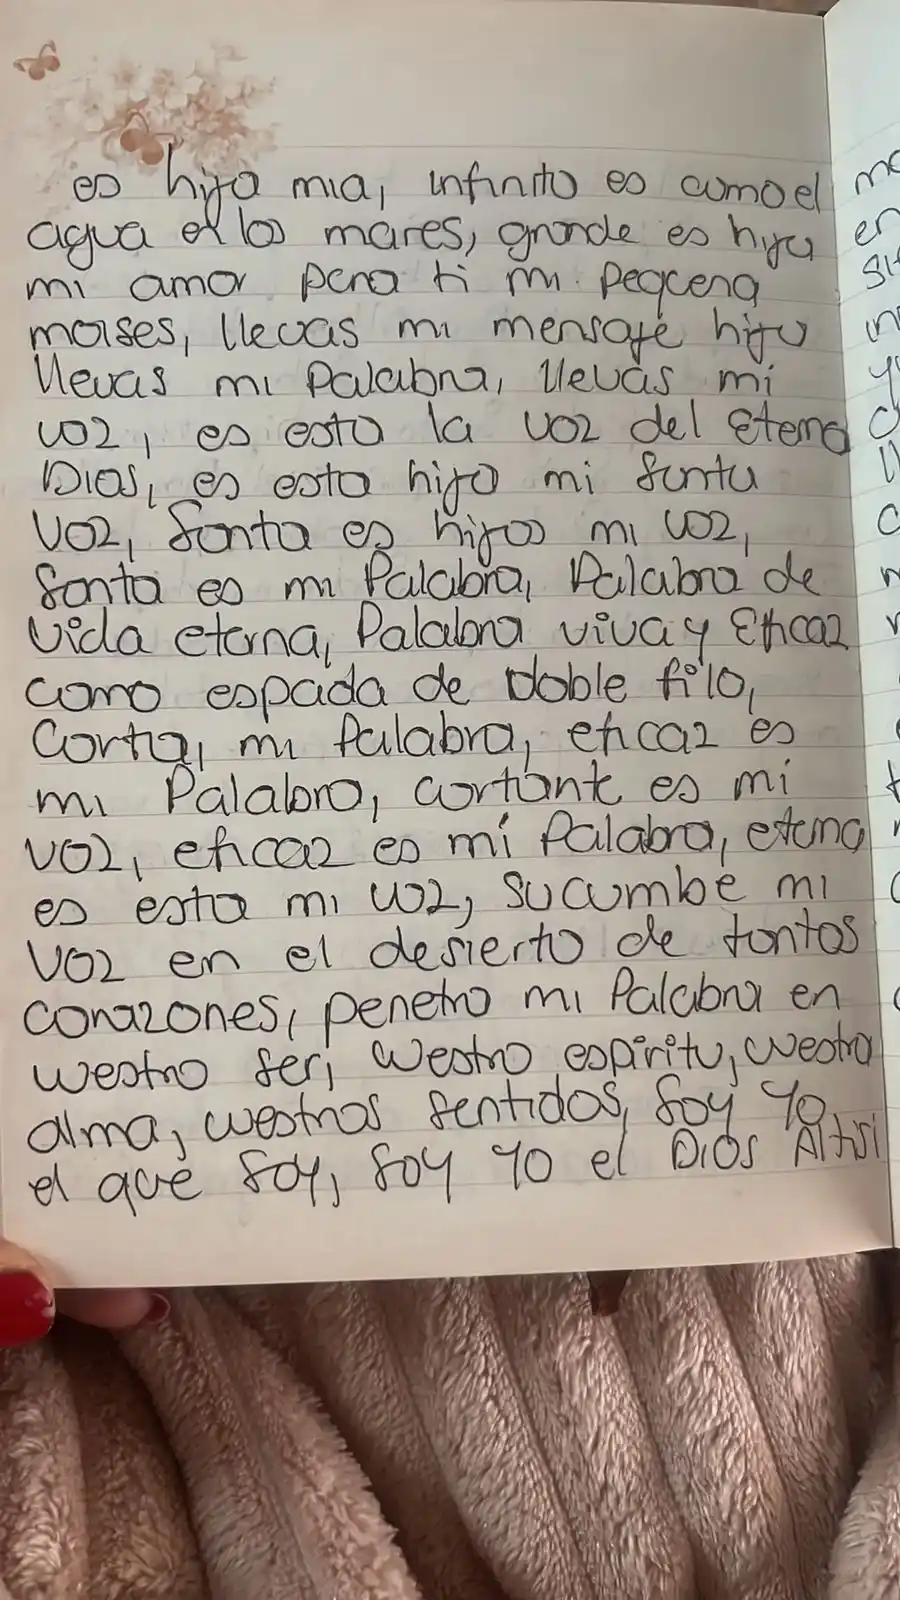 es hija mia, infinito es como el
agua en los mares, grande es hija
mi amor para ti mi pequena
moises, llevas mi mensaje hija
llevas mi Palabra, llevas mi
voz, es esta la voz del Eterno
Dios, es esta hija mi santa
voz, santa es hijos mi voz,
santa es mi Palabra, Palabra de
vida eterna, Palabra viva y Eficaz
como espada de doble filo,
Corta, mi Palabra, eficaz es
mi Palabra, cortante es mi
voz, eficaz es mi Palabra, eterna
es esta mi voz, sucumbe mi
voz en el desierto de tantos
corazones, penetra mi Palabra en
vuestro ser, vuestro espiritu, vuestra
alma, vuestros sentidos, soy yo
el que soy, soy yo el Dios Altisi